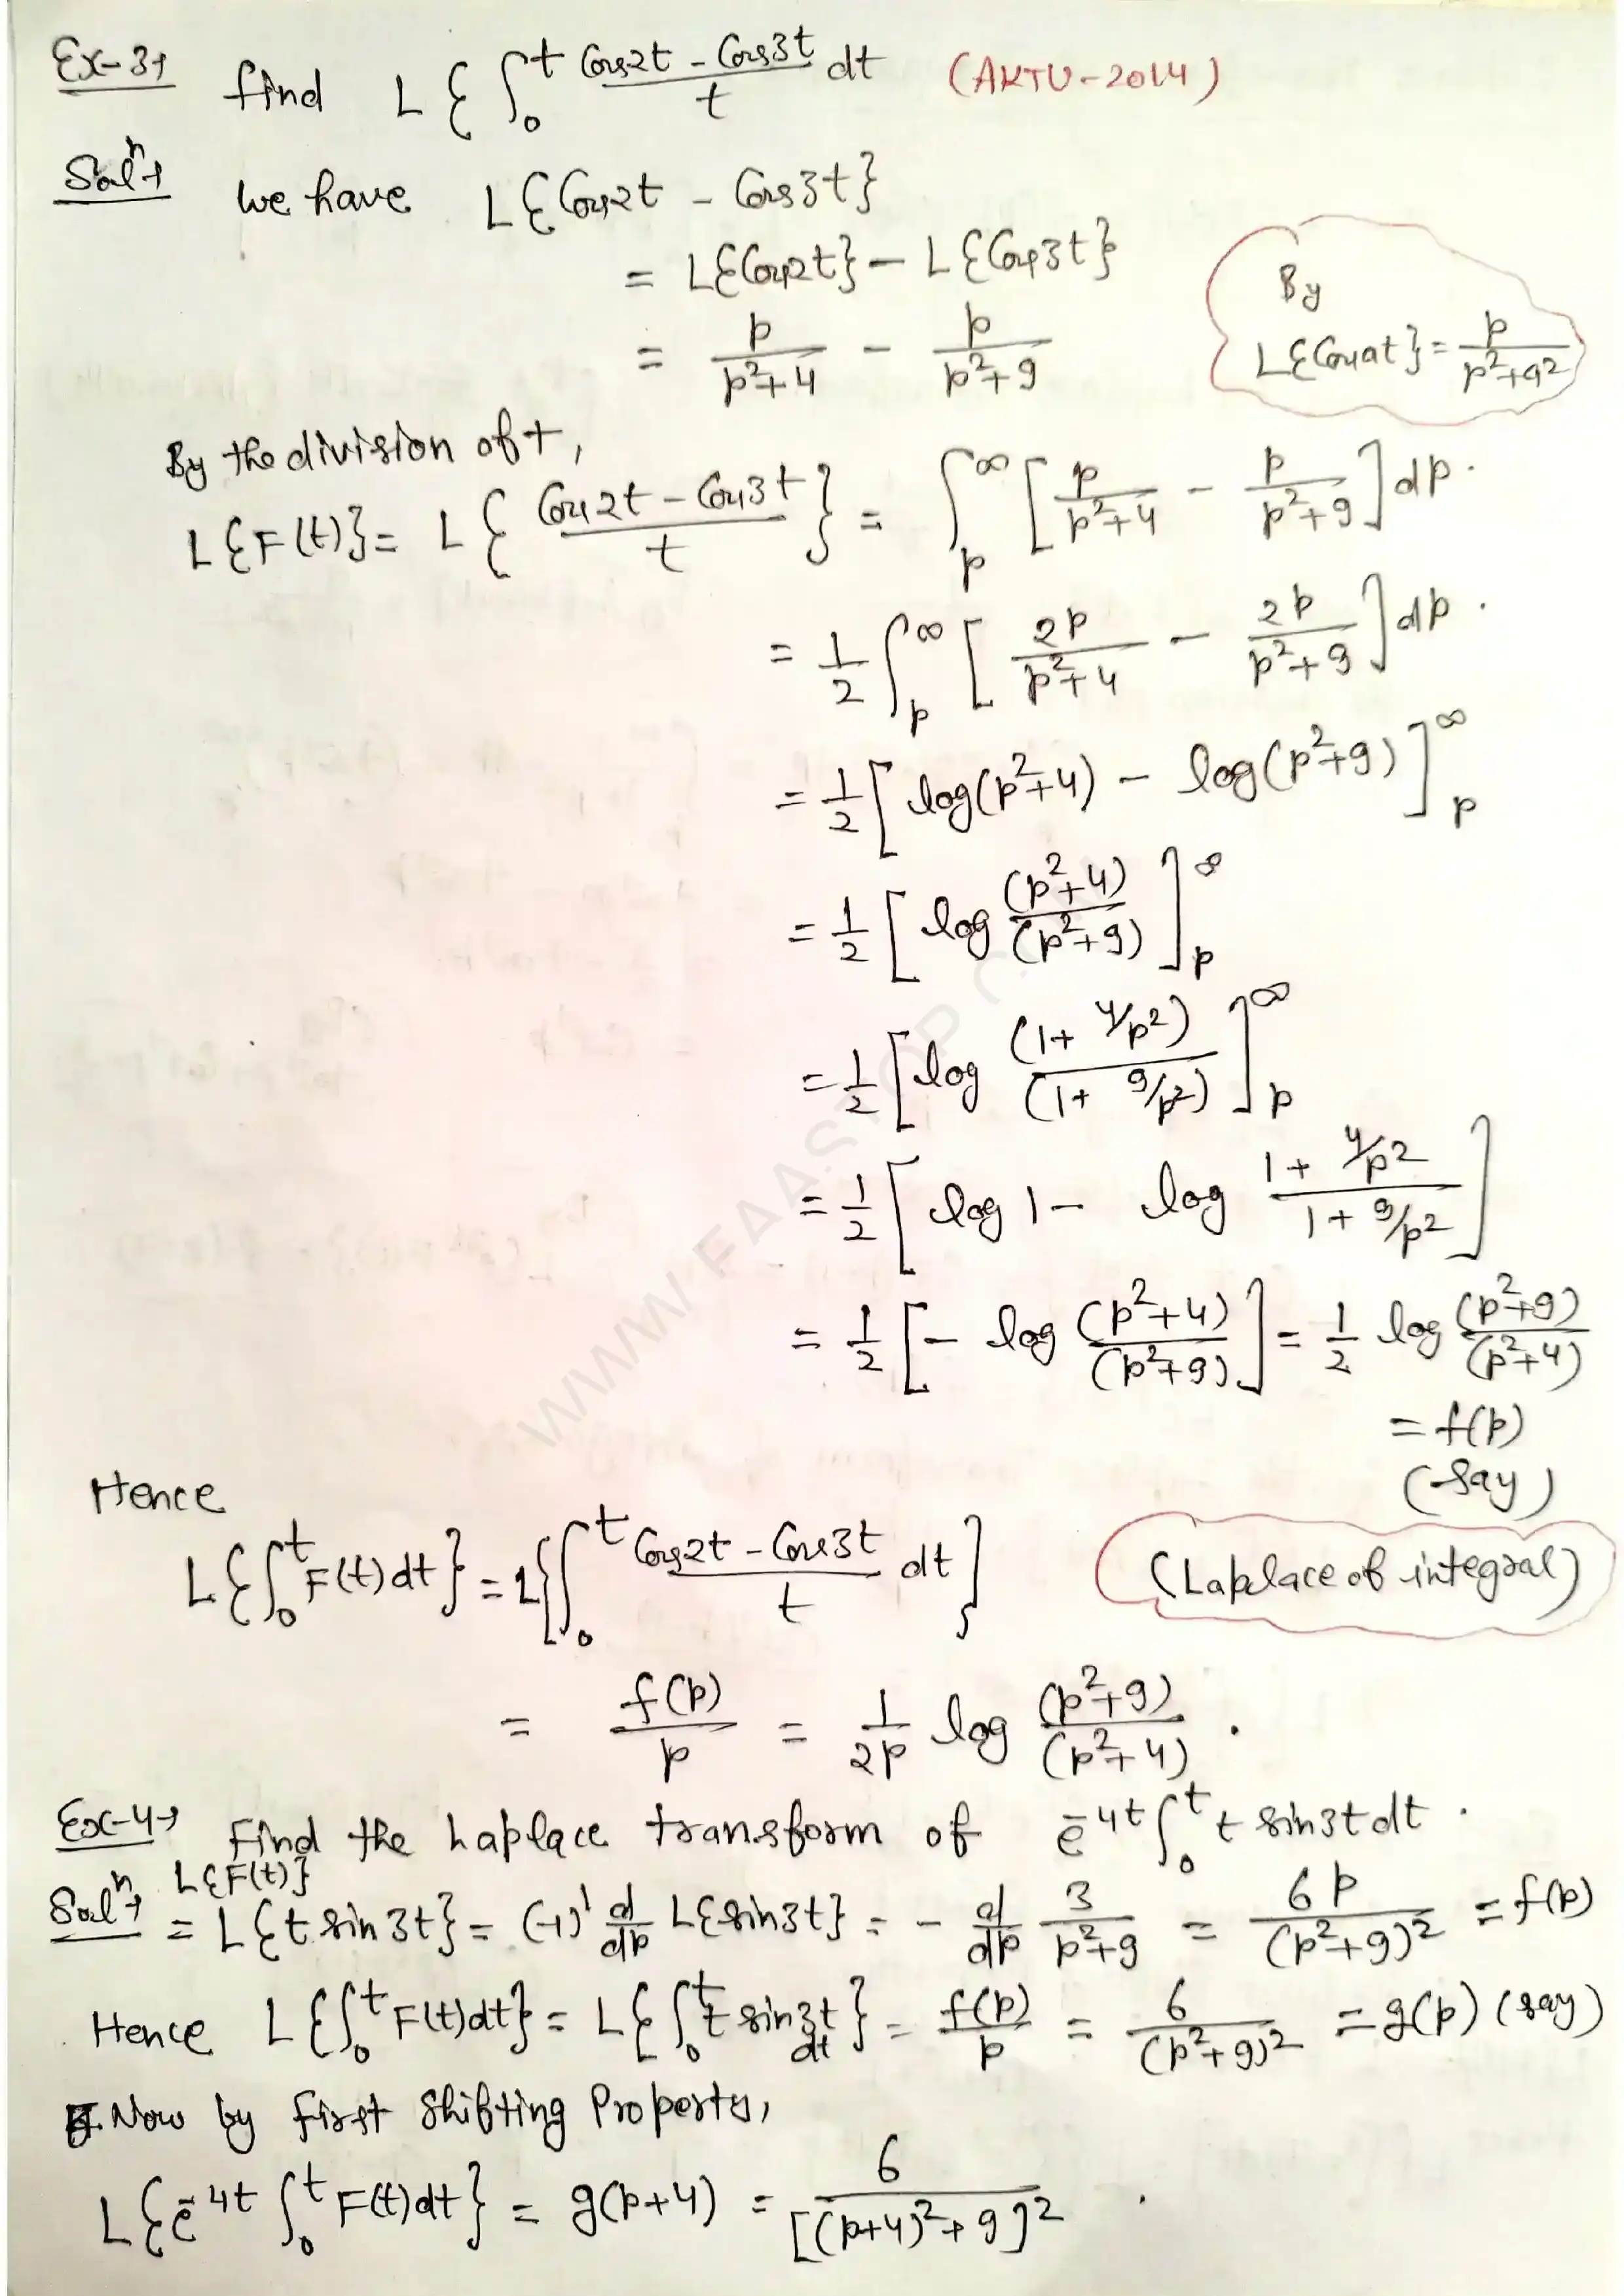 Ex-3→ find L{∫₀ᵗ (Cos2t - Cos3t)/t dt (AKTU-2014)
Solⁿ→ we have L{Cos2t - Cos3t}
= L{Cos2t} - L{Cos3t}
= p/(p²+4) - p/(p²+9)
By
L{Cosat} = p/(p²+a²)
By the division of t,
L{F(t)} = L{(Cos2t - Cos3t)/t} = ∫ₚ^∞ [p/(p²+4) - p/(p²+9)] dp.
= 1/2 ∫ₚ^∞ [2p/(p²+4) - 2p/(p²+9)] dp.
= 1/2 [log(p²+4) - log(p²+9)]ₚ^∞
= 1/2 [log (p²+4)/(p²+9)]ₚ^∞
= 1/2 [log (1+4/p²)/(1+9/p²)]ₚ^∞
= 1/2 [log 1 - log (1+4/p²)/(1+9/p²)]
= 1/2 [- log (p²+4)/(p²+9)] = 1/2 log (p²+9)/(p²+4)
= f(p)
(say)
Hence
L{∫₀ᵗ F(t)dt} = L{∫₀ᵗ (Cos2t - Cos3t)/t dt} (Laplace of integral)
= f(p)/p = 1/2p log (p²+9)/(p²+4).
Ex-4→ Find the Laplace transform of e⁻⁴ᵗ ∫₀ᵗ t sin3t dt.
Solⁿ→ L{F(t)}
= L{t sin3t} = (-1)¹ d/dp L{sin3t} = - d/dp 3/(p²+9) = 6p/(p²+9)² = f(p)
Hence L{∫₀ᵗ F(t)dt} = L{∫₀ᵗ t sin3t dt} = f(p)/p = 6/(p²+9)² = g(p) (say)
Now by first Shifting Property,
L{e⁻⁴ᵗ ∫₀ᵗ F(t)dt} = g(p+4) = 6/[(p+4)²+9]².